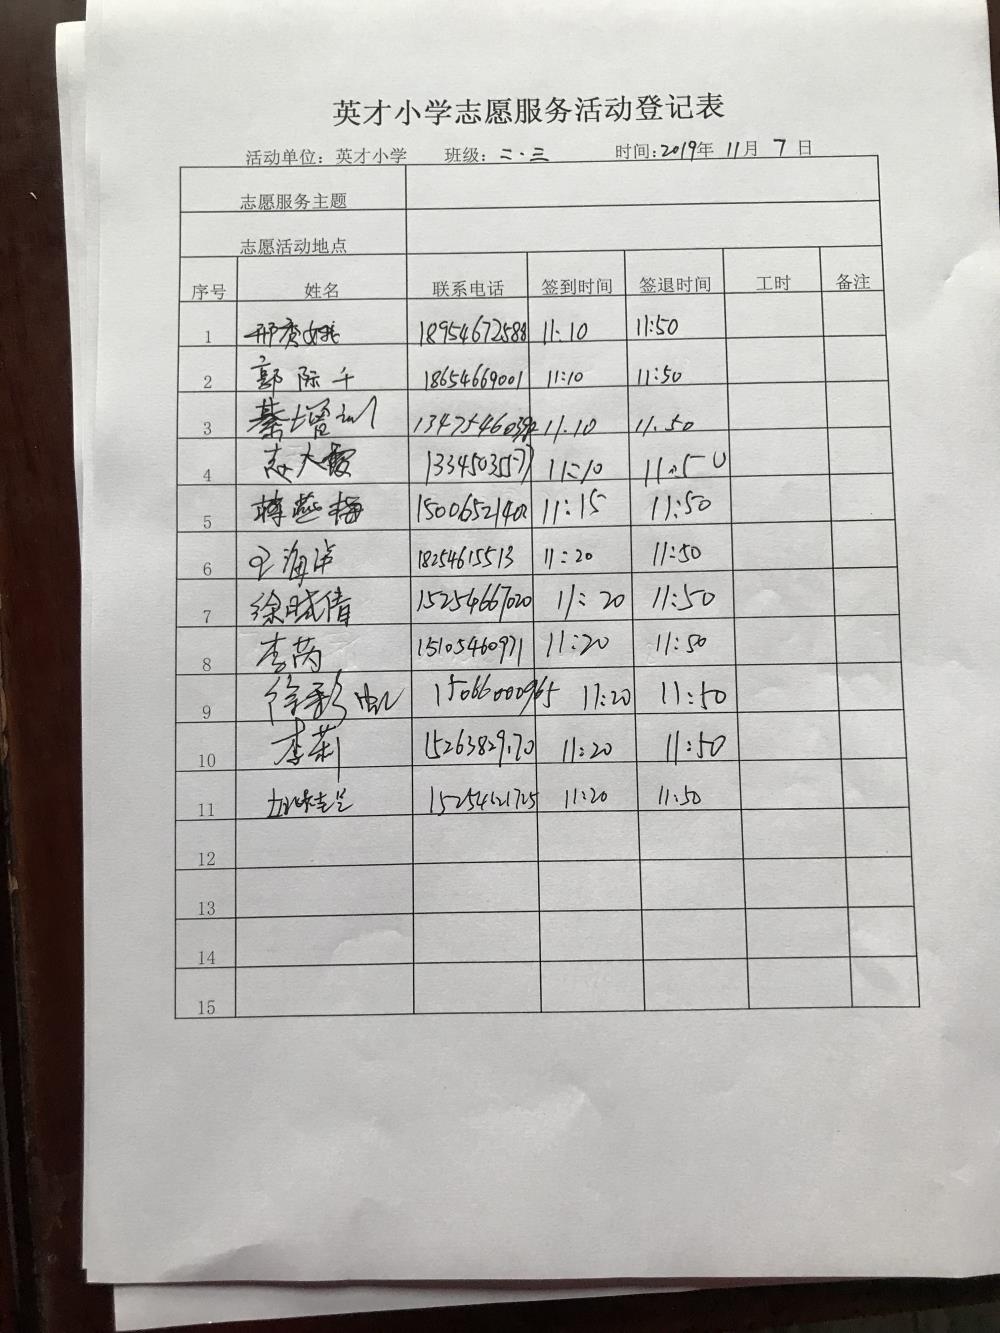 英才小学志愿服务活动登记表
活动单位：英才小学 班级：二·三 时间：2019年 11月 7日
志愿服务主题
志愿活动地点
序号 姓名 联系电话 签到时间 签退时间 工时 备注
1 18954672588 11:10 11:50
2 郭际千 18654669001 11:10 11:50
3 11:10 11:50
4 11:10 11:50
5 蒋燕梅 11:15 11:50
6 王海岸 18254615513 11:20 11:50
7 徐晓倩 15254667020 11:20 11:50
8 李芮 15105460971 11:20 11:50
9 徐彩 15066000965 11:20 11:50
10 李莉 15263829170 11:20 11:50
11 11:20 11:50
12
13
14
15